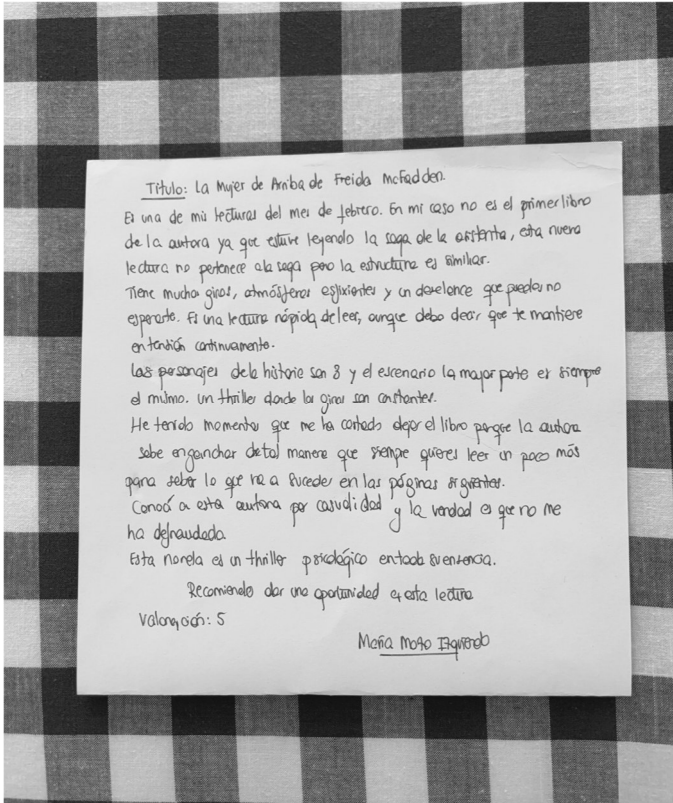 Título: La Mujer de Arriba de Freida McFadden.
Es una de mis lecturas del mes de febrero. En mi caso no es el primer libro
de la autora ya que estuve leyendo la saga de la asistenta, esta nueva
lectura no pertenece a la saga pero la estructura es similiar.
Tiene muchos giros, atmósferas asfixiantes y un desenlence que puedas no
esperarte. Es una lectura rápida de leer, aunque debo decir que te mantiene
en tensión continuamente.
Los personajes de la historia son 8 y el escenario la mayor parte es siempre
el mismo. Un thriller donde los giros son constantes.
He tenido momentos que me ha costado dejar el libro porque la autora
sabe enganchar de tal manera que siempre quieres leer un poco más
para saber lo que va a suceder en las páginas siguientes.
Conocí a esta autora por casualidad y la verdad es que no me
ha defraudado.
Esta novela es un thriller psicológico en toda su esencia.
Recomiendo dar una oportunidad a esta lectura
Valoración: 5
María Mozo Izquierdo